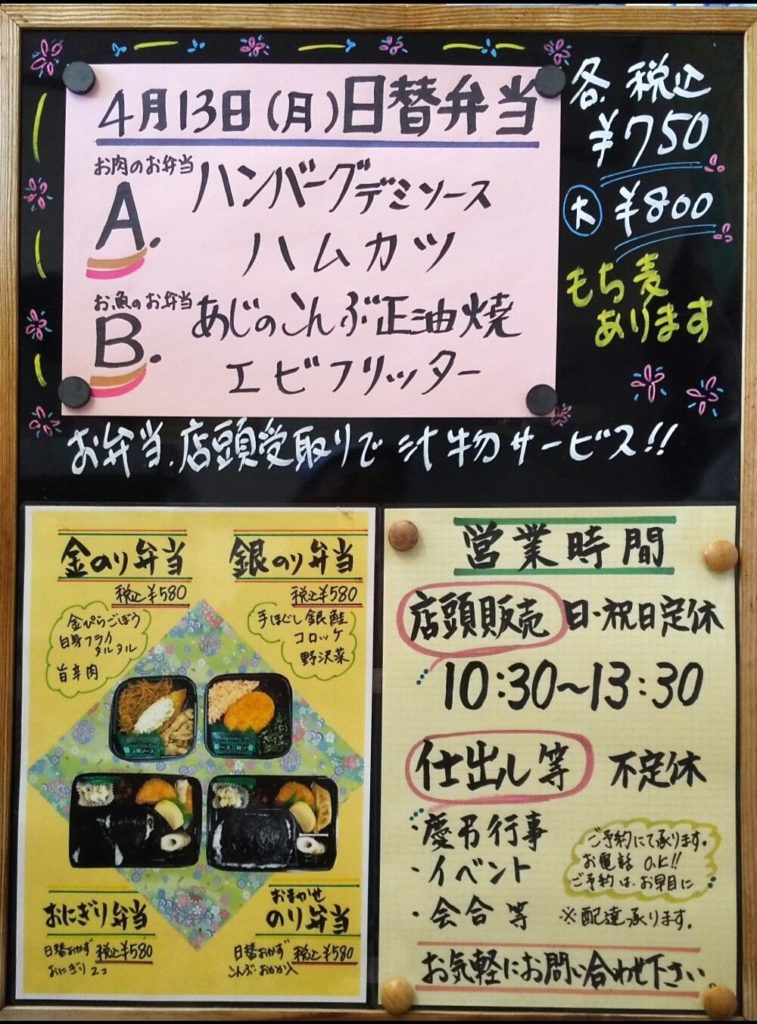 4月13日(月)日替弁当
お肉のお弁当
A.
ハンバーグデミソース
ハムカツ
お魚のお弁当
B.
あじのこんぶ正油焼
エビフリッター
各税込
¥750
大 ¥800
もち麦
あります
お弁当、店頭受取りで汁物サービス!!
金のり弁当
税込¥580
金ぴらごぼう
白身フライ
タルタル
旨辛肉
銀のり弁当
税込¥580
手ほぐし銀鮭
コロッケ
野沢菜
おにぎり弁当
日替おかず 税込¥580
おにぎり2つ
おまかせ
のり弁当
日替おかず 税込¥580
こんぶおかか入
営業時間
店頭販売 日・祝日定休
10:30~13:30
仕出し等 不定休
・慶弔行事
・イベント
・会合等
ご予約にて承ります。
お電話O.K!!
ご予約は、お早目に
※配達承ります。
お気軽にお問い合わせ下さい。